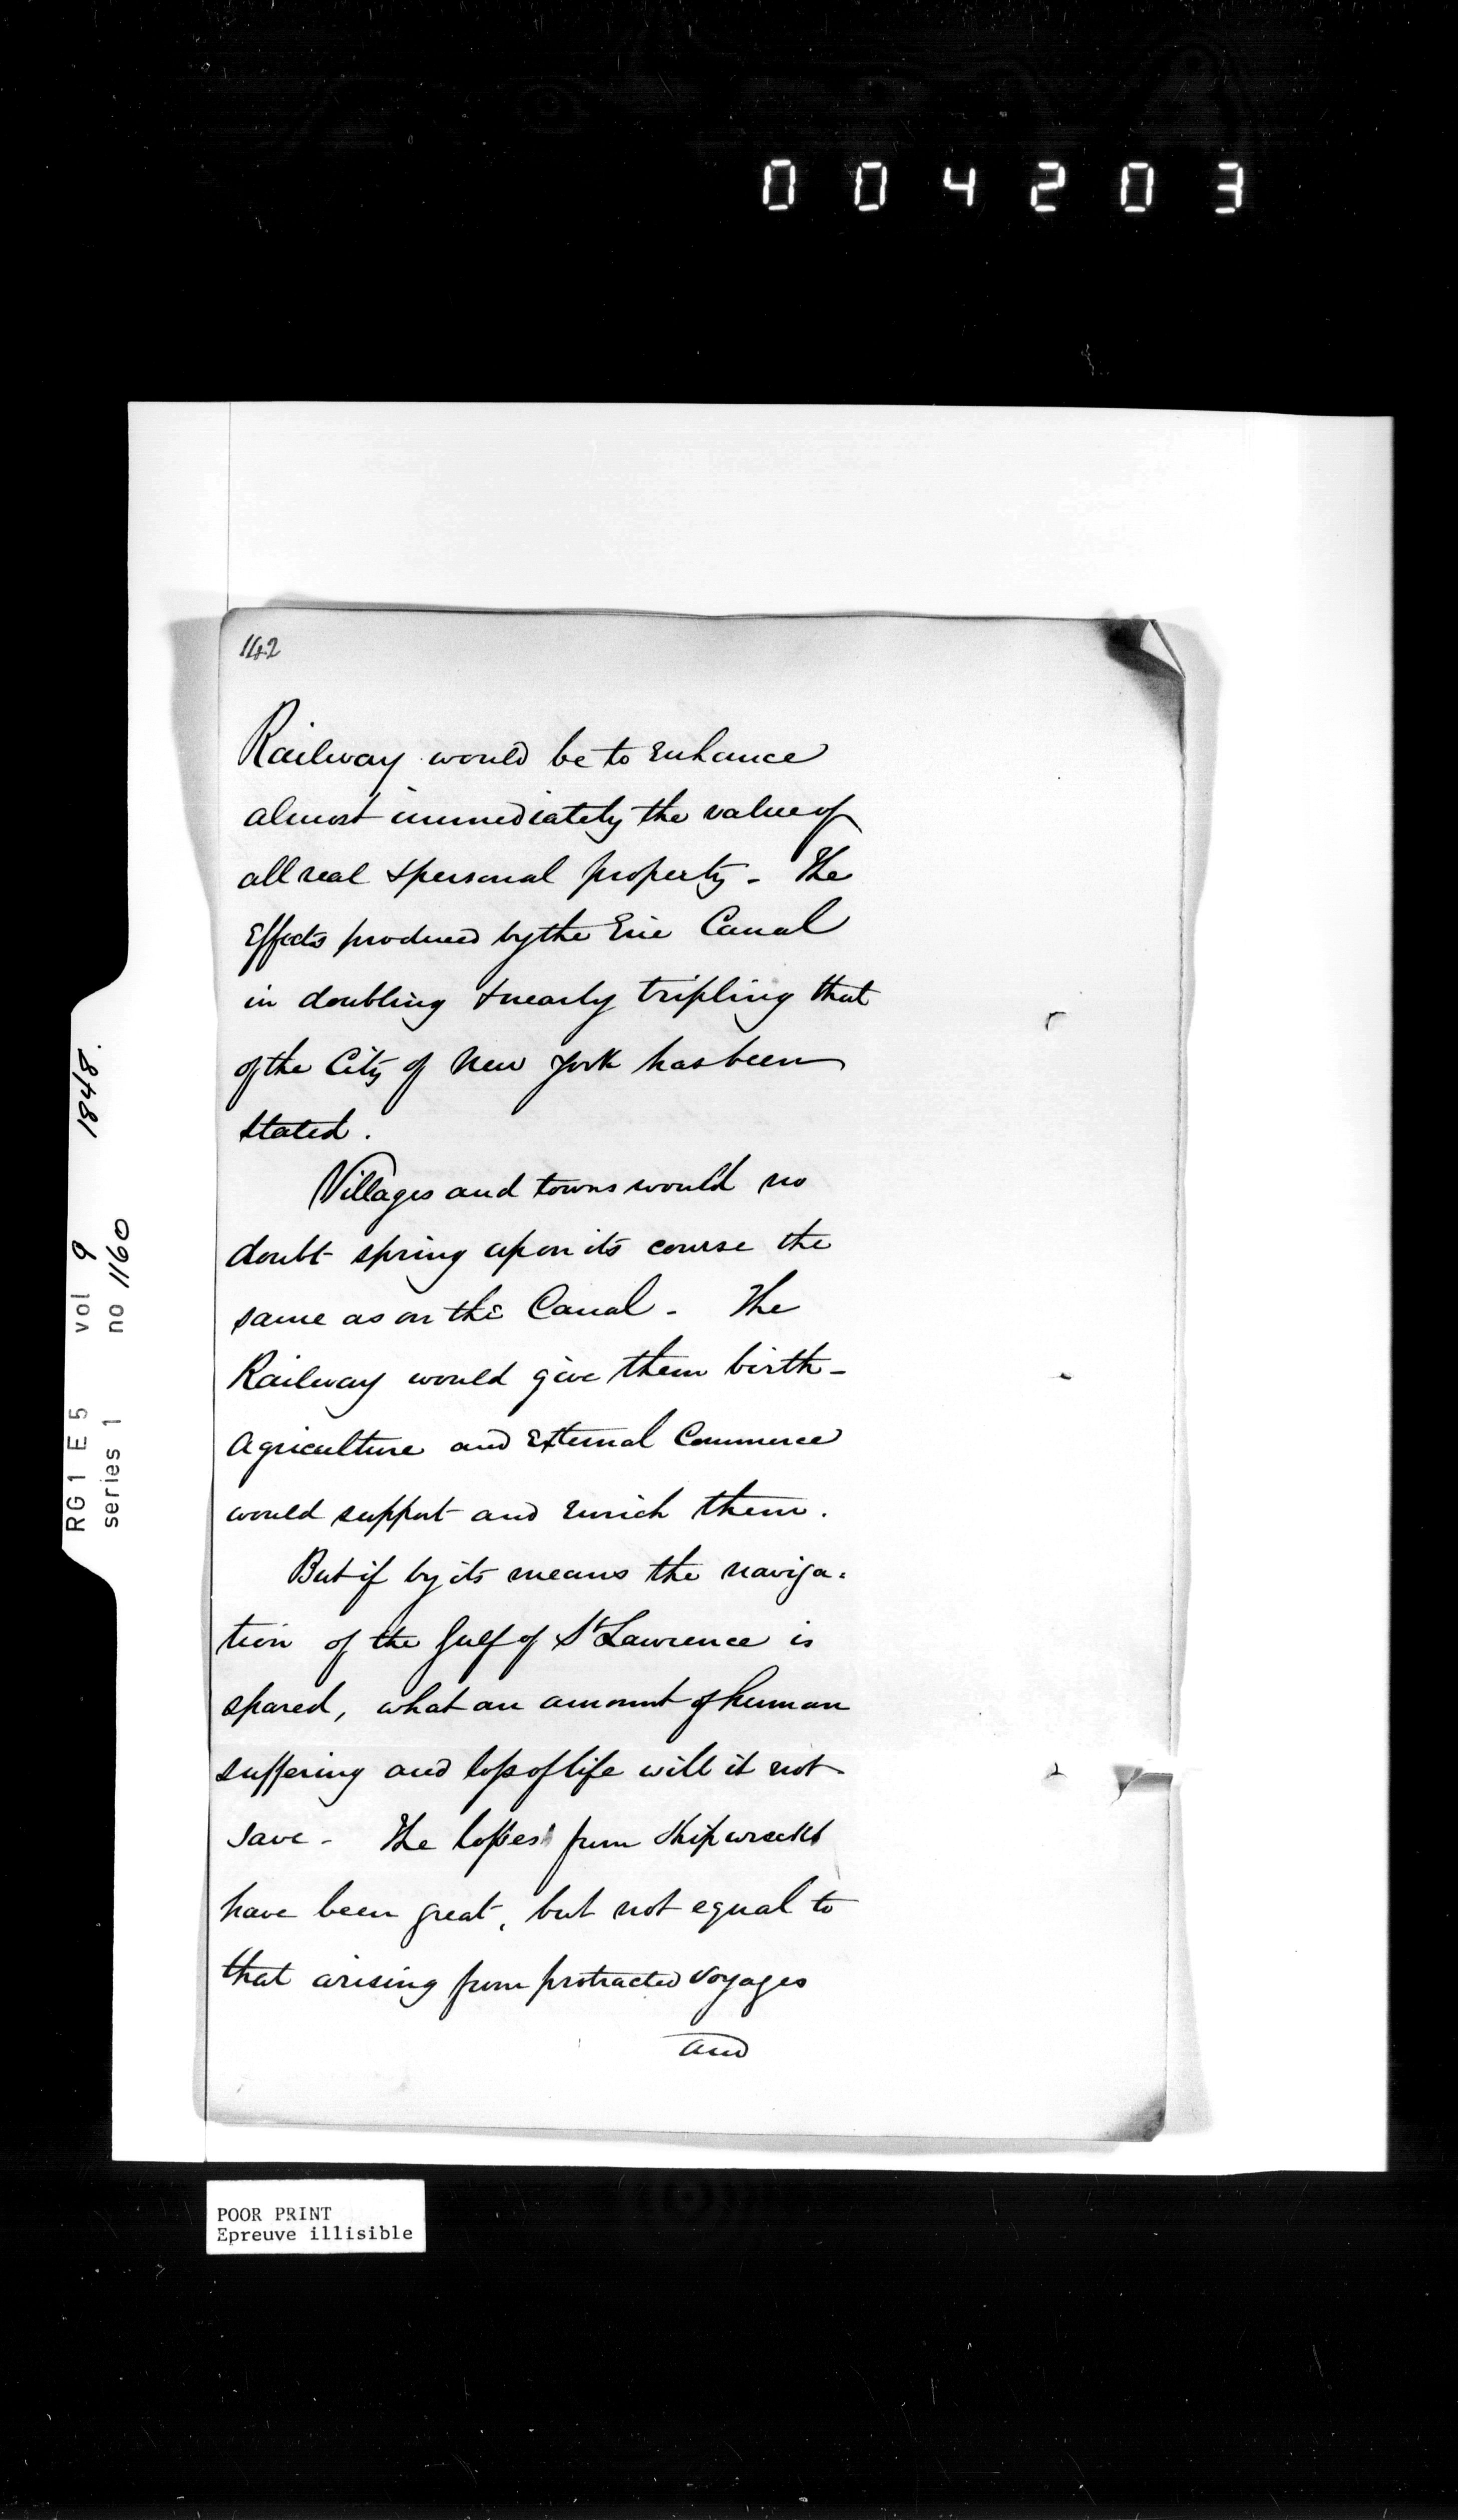 004203
142
Railway would be to enhance
almost immediately the value of
all real & personal property - The
Effects produced by the Erie Canal
in doubling & nearly tripling that
of the City of New York has been
stated.
Villages and towns would no
doubt spring up on its course the
same as on the Canal - The
Railway would give them birth -
Agriculture and External Commerce
would support and enrich them.
But if by its means the naviga=
tion of the Gulf of St Lawrence is
spared, what an amount of human
suffering and loss of life will it not
save - The losses from shipwrecks
have been great, but not equal to
that arising from protracted voyages
and
RG1 E5 vol 9 1848.
series 1 no 1160
POOR PRINT
Epreuve illisible